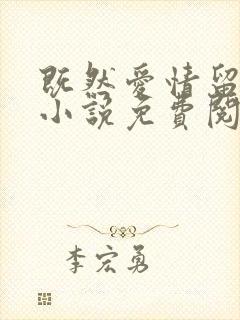 既然愛情留
小說免費閱
李宏勇